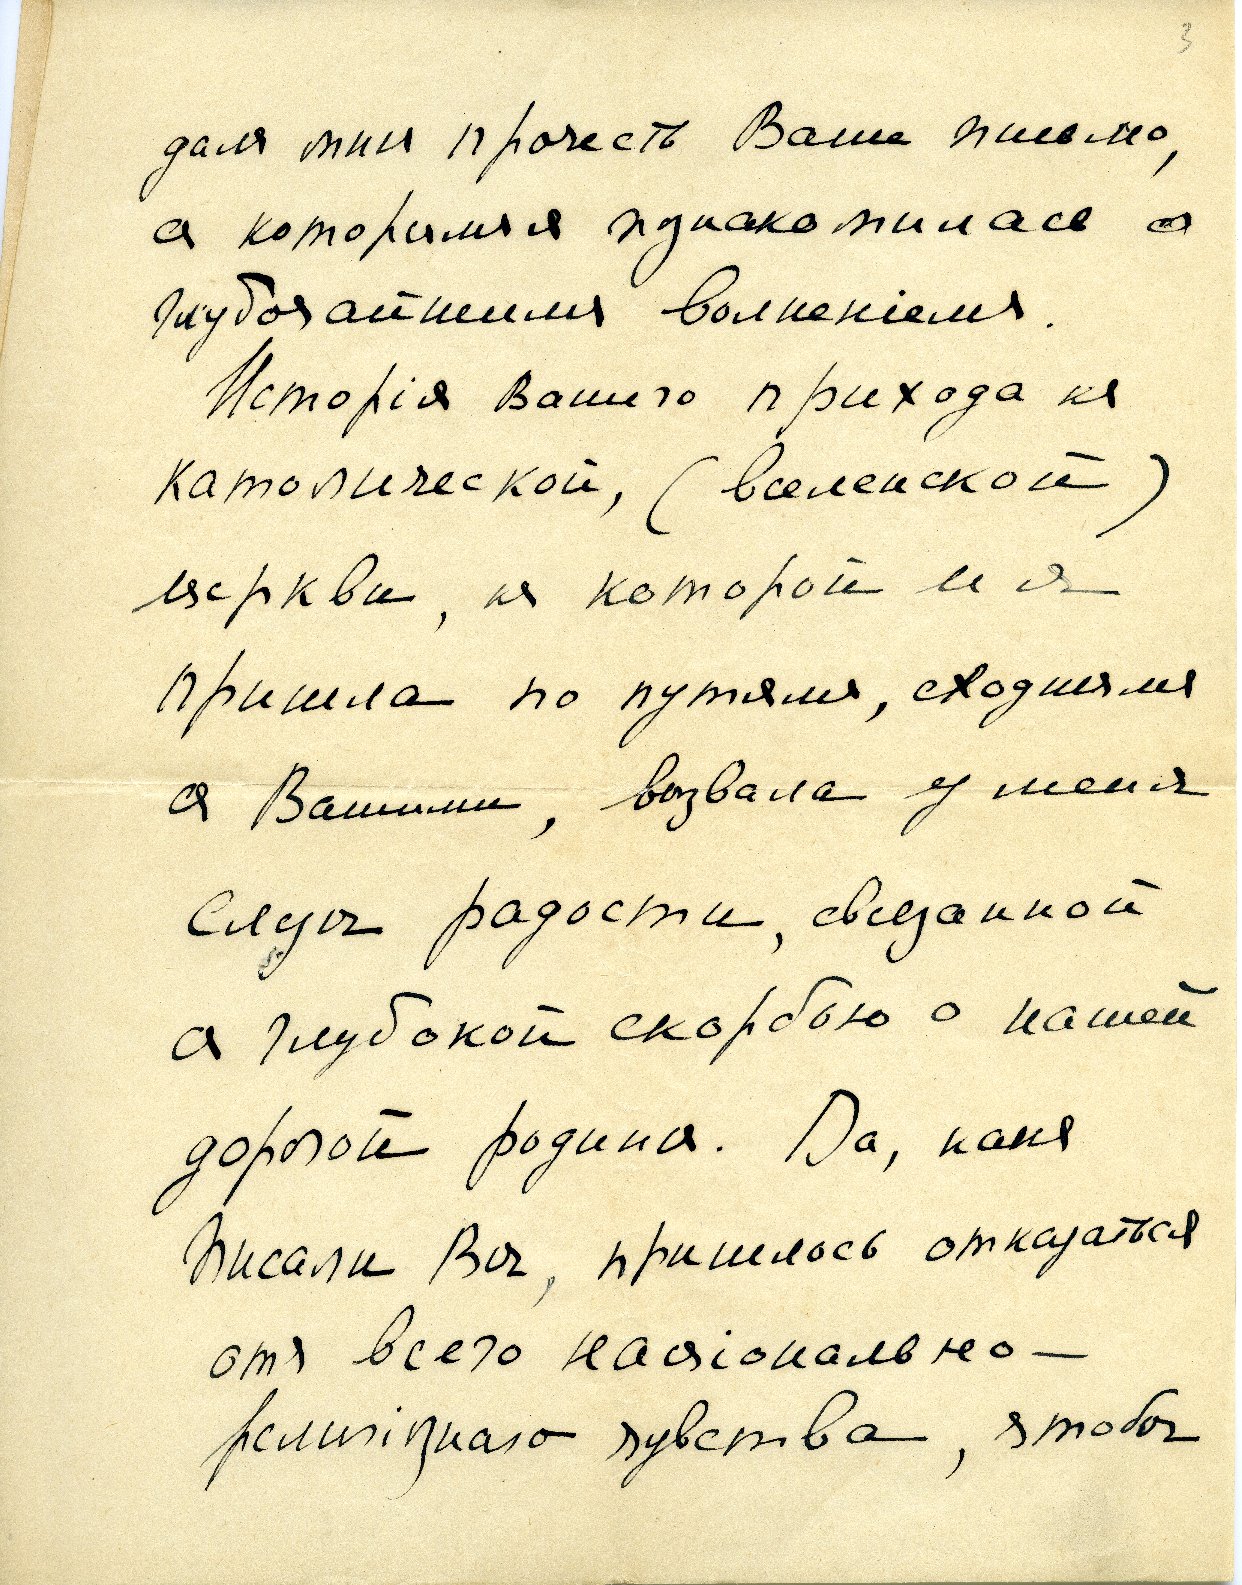 3
далъ мнѣ прочесть Ваше письмо,
съ которымъ я познакомилась съ
глубочайшимъ волненіемъ.
Исторія Вашего прихода къ
католической, (вселенской)
церкви, къ которой и я
пришла по путямъ, сходнымъ
съ Вашими, вызвала у меня
слезы радости, связанной
съ глубокой скорбью о нашей
дорогой родинѣ. Да, какъ
писали Вы, пришлось отказаться
отъ всего національно-
религіознаго чувства, чтобы